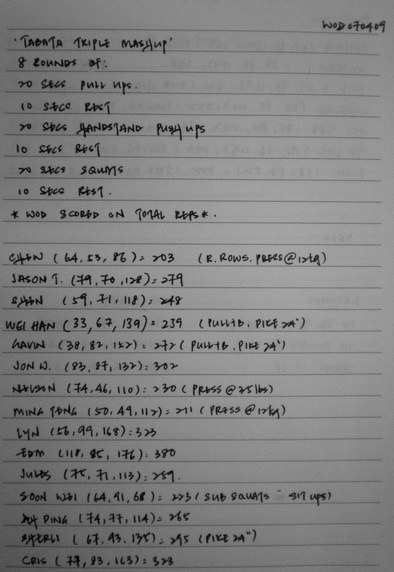 WOD 070409
'TABATA TRIPLE MASHUP'
8 ROUNDS OF:
20 SECS PULL UPS.
10 SECS REST
20 SECS HANDSTAND PUSH UPS
10 SECS REST
20 SECS SQUATS
10 SECS REST.
* WOD SCORED ON TOTAL REPS *.
(64, 53, 86) = 203 (R. ROWS. PRESS @ 12kg)
JASON T. (79, 70, 128) = 279
(59, 71, 118) = 248
WEI HAN (33, 67, 139) = 239 (PULLTB. PIKE 24")
GAVIN (38, 82, 152) = 272 (PULLTB. PIKE 24")
JON W. (83, 87, 132): 302
NELSON (74, 46, 110): 230 (PRESS @ 25lbs)
MING TENG (50, 49, 112) = 211 (PRESS @ 12kg)
LYN (56, 99, 168): 323
EDM (118, 86, 176): 380
JULES (75, 71, 113): 259.
SOON WEI (64, 91, 68) = 223 (SUB SQUATS - SIT UPS)
PING (74, 77, 114) = 265
(67, 93, 135) = 295 (PIKE 24")
CRIS (77, 83, 163) = 323